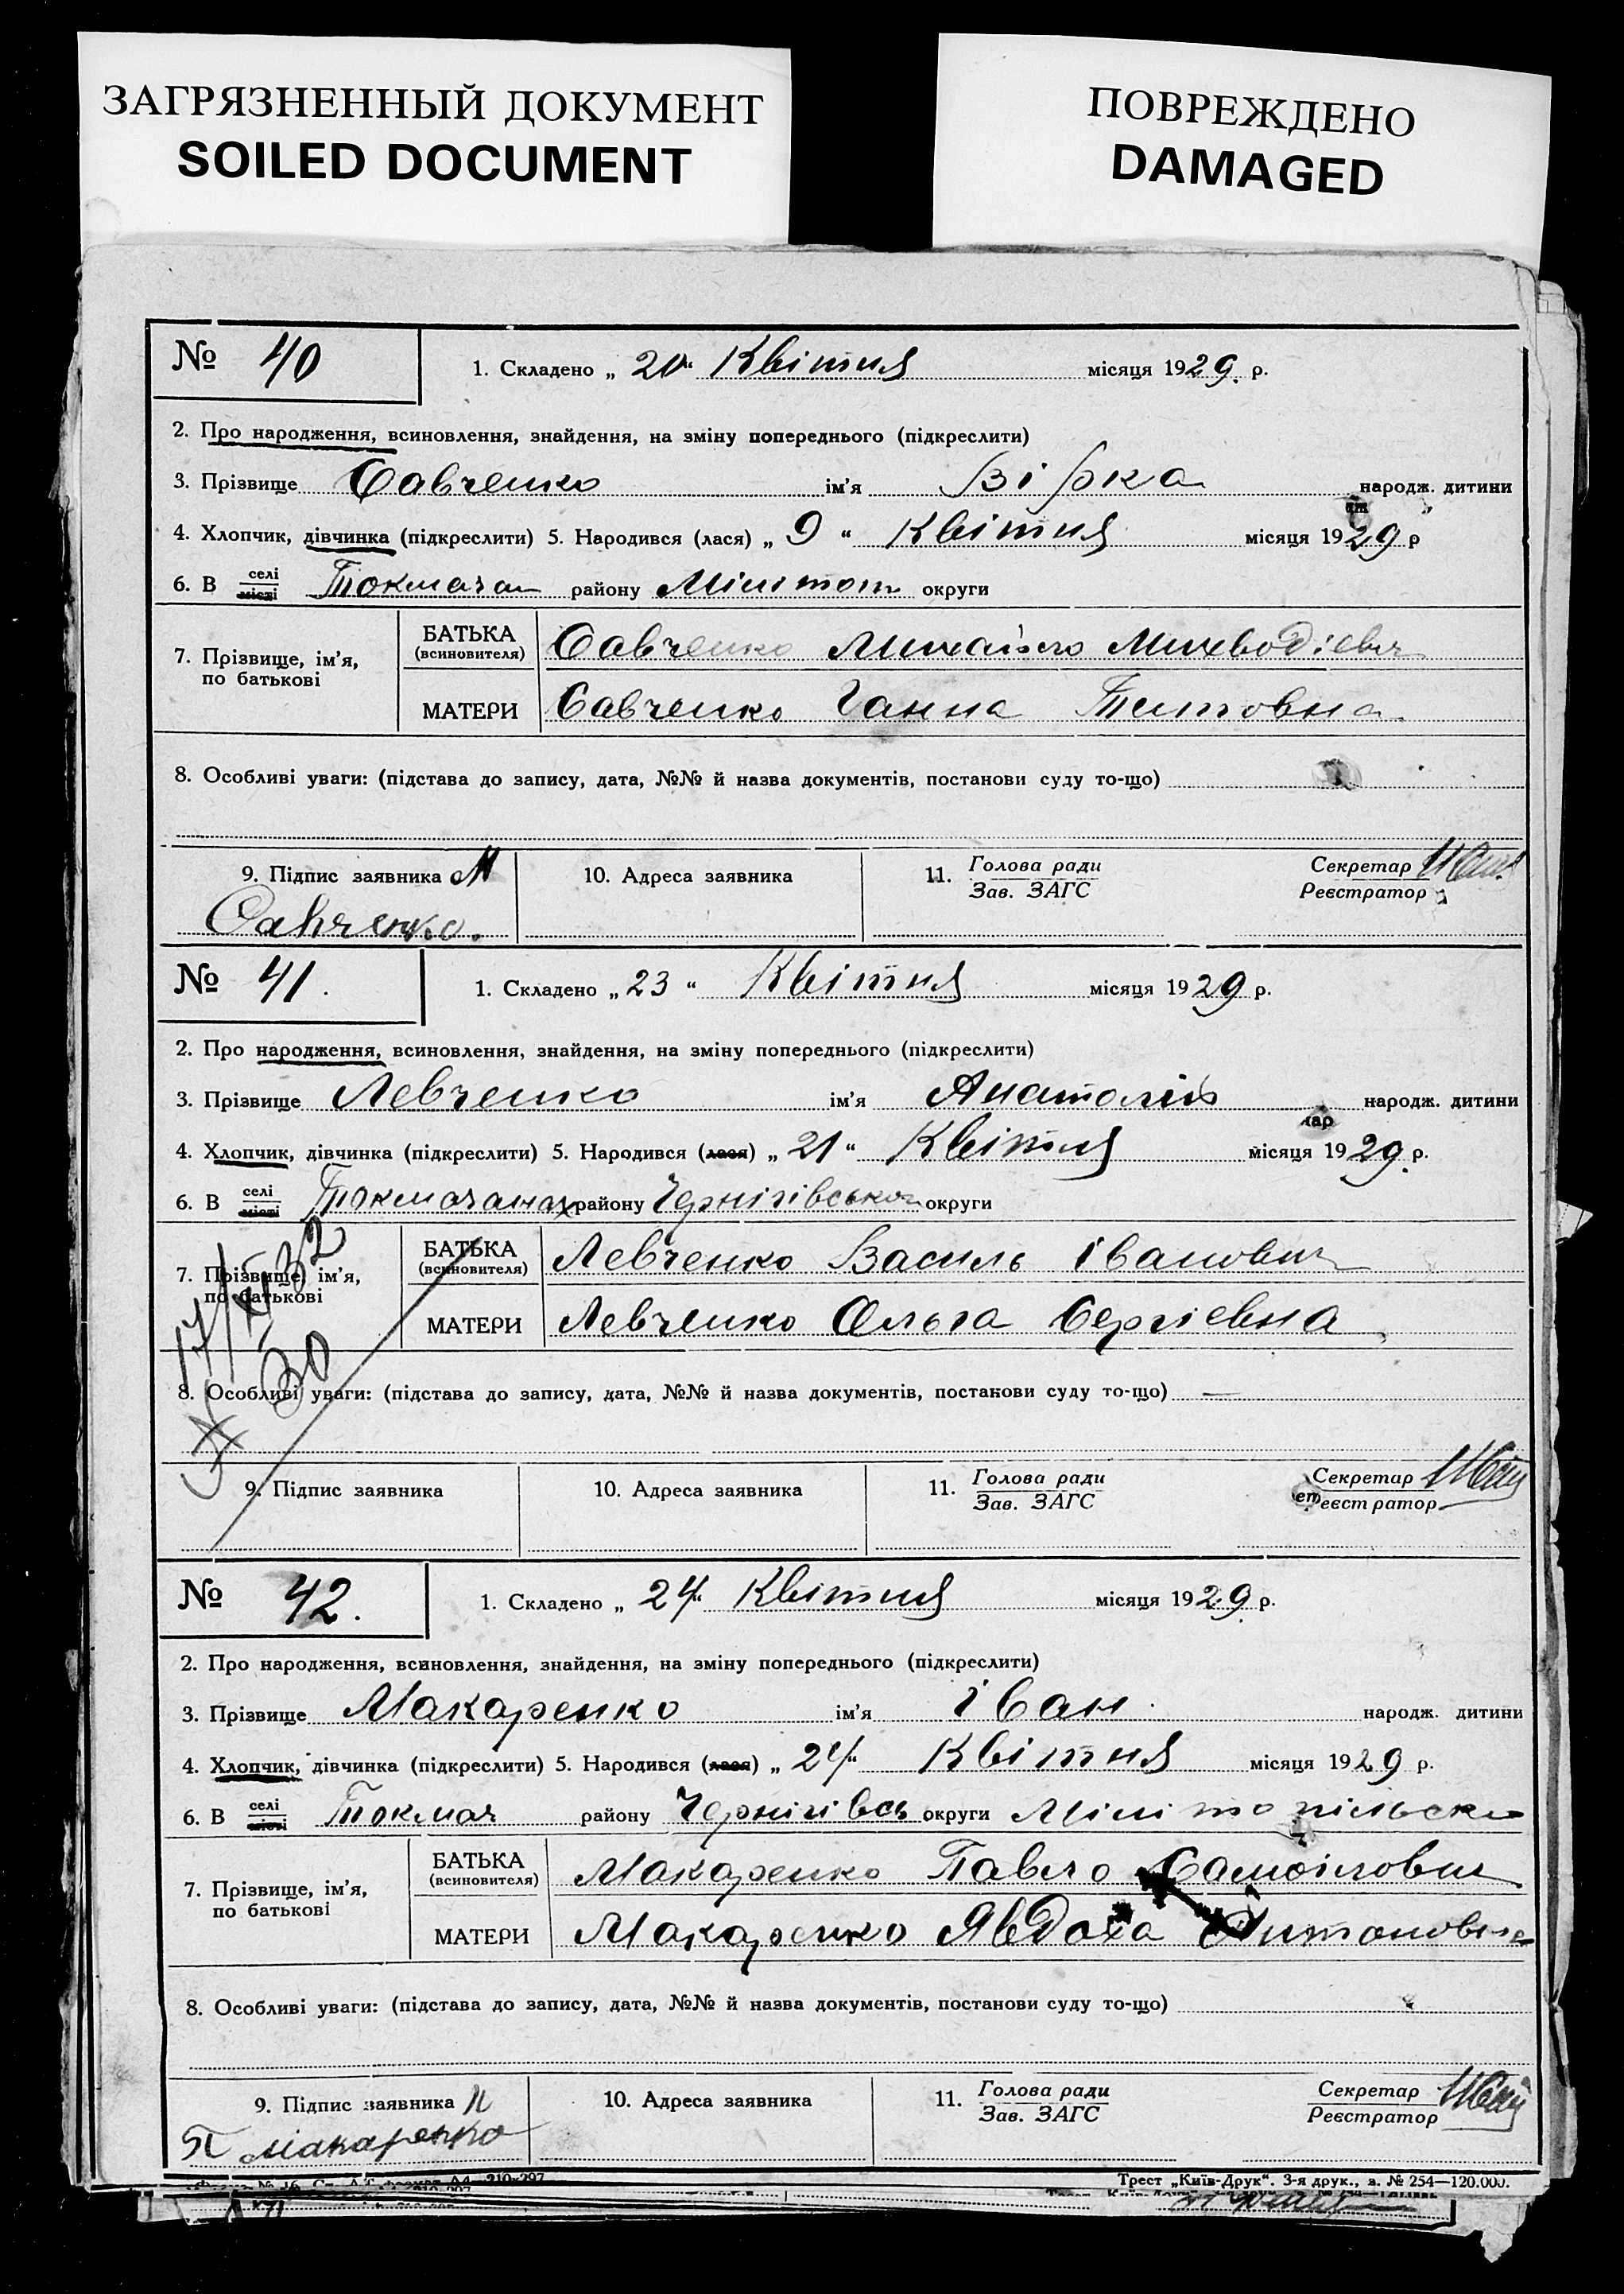 ЗАГРЯЗНЕННЫЙ ДОКУМЕНТ
SOILED DOCUMENT
ПОВРЕЖДЕНО
DAMAGED
№ 40
1. Складено „ 20 “ Квітня місяця 1929. р.
2. Про народження, всиновлення, знайдення, на зміну попереднього (підкреслити)
3. Прізвище Савченко ім'я Вірка народж. дитини
4. Хлопчик, дівчинка (підкреслити) 5. Народився (лася) „ 9 “ Квітня місяця 1929 р
6. В селі місті Токмача району Мілітоп округи
7. Прізвище, ім'я, по батькові
БАТЬКА (всиновителя) Савченко Михайло
МАТЕРИ Савченко Ганна Титовна
8. Особливі уваги: (підстава до запису, дата, №№ й назва документів, постанови суду то-що)
9. Підпис заявника М Савченко.
10. Адреса заявника
11. Голова ради Зав. ЗАГС
Секретар Реєстратор
№ 41.
1. Складено „ 23 “ Квітня місяця 1929 р.
2. Про народження, всиновлення, знайдення, на зміну попереднього (підкреслити)
3. Прізвище Левченко ім'я Анатолій народж. дитини
4. Хлопчик, дівчинка (підкреслити) 5. Народився (лася) „ 21 “ Квітня місяця 1929. р.
6. В селі місті Токмачанах району Чернігівського округи
7. Прізвище, ім'я, по батькові
БАТЬКА (всиновителя) Левченко Василь Іванович
МАТЕРИ Левченко Ольга Сергіевна
8. Особливі уваги: (підстава до запису, дата, №№ й назва документів, постанови суду то-що) —
9. Підпис заявника
10. Адреса заявника
11. Голова ради Зав. ЗАГС
Секретар Реєстратор
№ 42.
1. Складено „ 24 “ Квітня місяця 1929 р.
2. Про народження, всиновлення, знайдення, на зміну попереднього (підкреслити)
3. Прізвище Макаренко ім'я Іван народж. дитини
4. Хлопчик, дівчинка (підкреслити) 5. Народився (лася) „ 24 “ Квітня місяця 1929 р.
6. В селі місті Токмач району Чернігівсь округи Мілітопільски
7. Прізвище, ім'я, по батькові
БАТЬКА (всиновителя) Макаренко Павло Самоілович
МАТЕРИ Макаренко Явдоха Антоновна
8. Особливі уваги: (підстава до запису, дата, №№ й назва документів, постанови суду то-що)
9. Підпис заявника П Макаренко
10. Адреса заявника
11. Голова ради Зав. ЗАГС
Секретар Реєстратор
Трест „Київ-Друк“. 3-я друк., з. № 254—120.000.